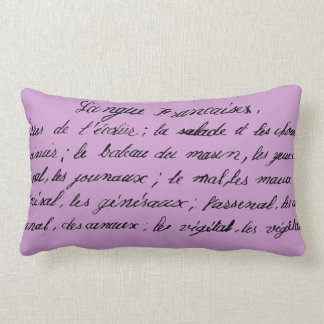 Langue Francaises.
de l'écolier; la salade et les chou
; le bateau du marin, les
les jounaux; le mal, les maux
les généraux; l'arsenal. les
nal, des canaux; le végétal. les végét